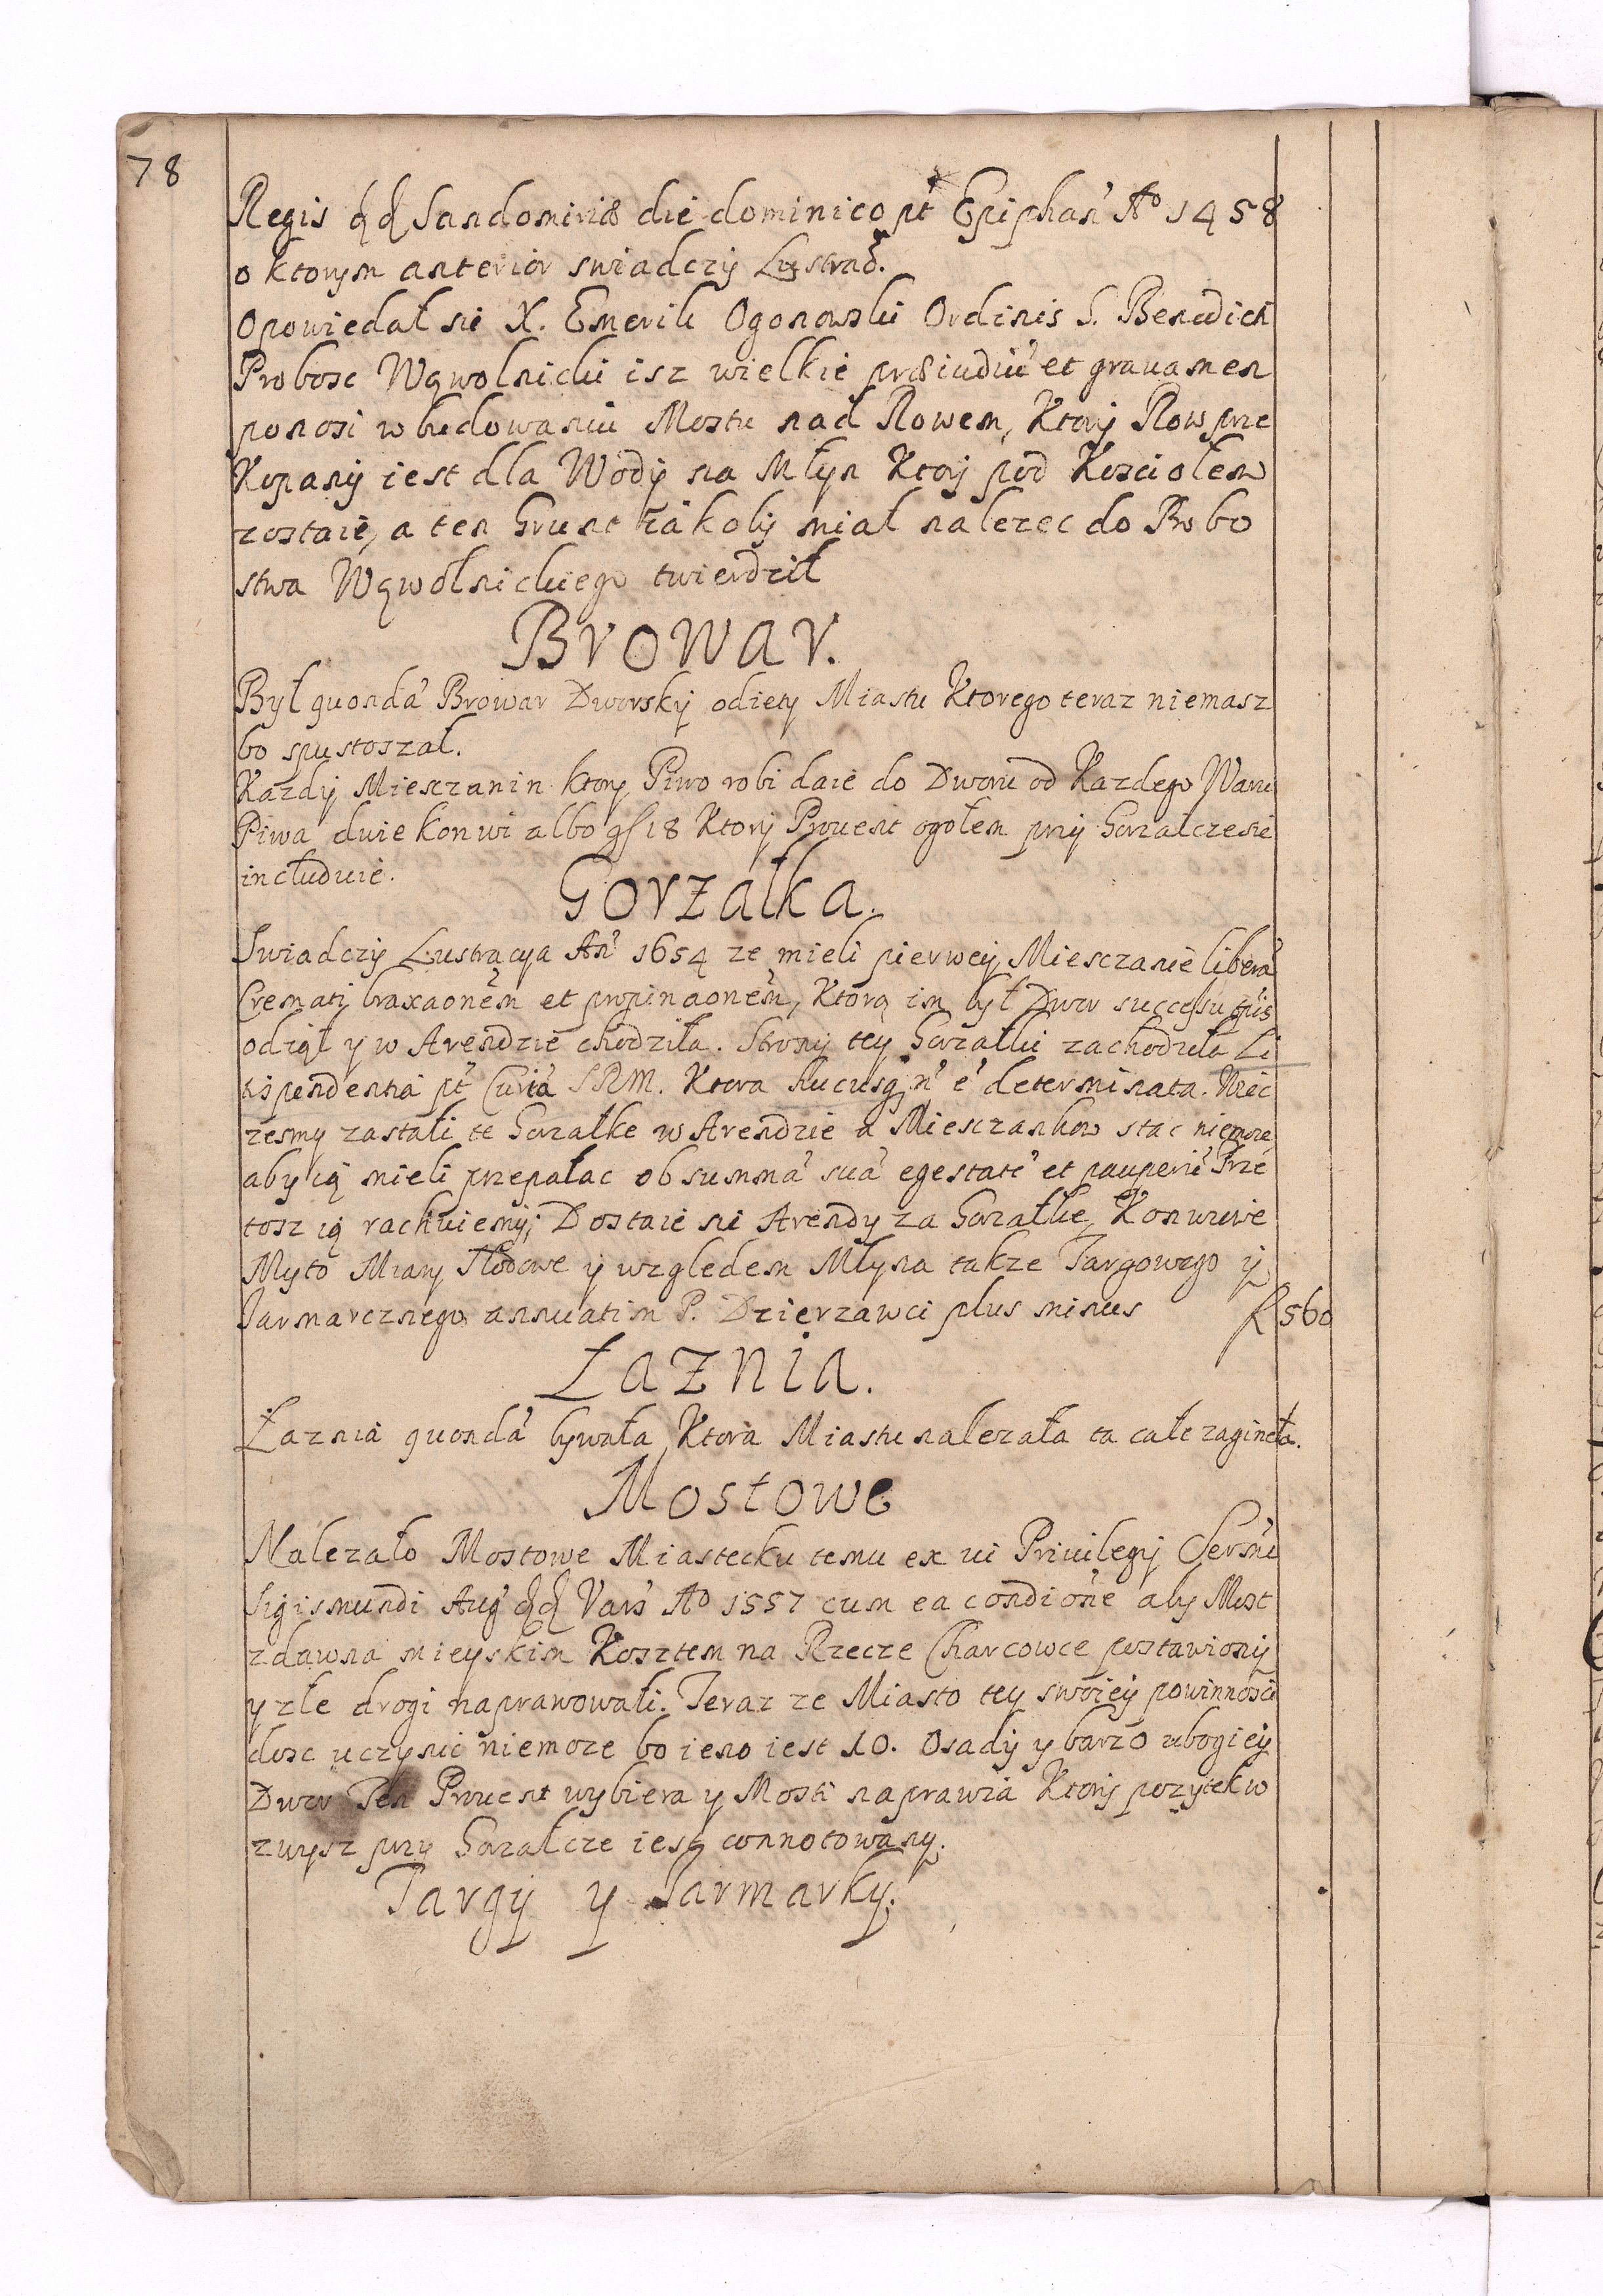 78
Regis Sandomiriæ die dominico pt Epiphan' Ao 1458
o ktorym anterior swiadczy Lustrao.
Opowiedał sie X. Emerik Ogonowski Ordinis S. Benedicti
Probosc Wąwolnicki isz wielkie præiudiu' et grauamen
ponosi w budowaniu Mostu nad Rowem, Ktory Row prze
Kopany iest dla Wody na Młyn Ktory pod Kosciołem
zostaie, a ten Grunt iakoby miał nalezec do Probo
stwa Wąwolnickiego twierdził
Browar.
Był quonda' Browar Dworsky odiety Miastu Ktorego teraz niemasz
bo spustoszał.
Kazdy Miesczanin ktory Piwo robi daie do Dworu od Kazdego Waru
Piwa dwie konwi albo gs 18 Ktory Prouent ogołem przy Gorzałcze sie
includuie.
Gorzałka.
Swiadczy Lustracya An' 1654 ze mieli pierwey Miesczanie libera'
Cremati braxaonem et propinaonem, Ktorą im był Dwor successu tpis
odiął y w Arendzie chodziła. Strony tey Gorzałki zachodziła Li
tispendentia pt Curia SRM. Ktora hucusq n' e' determinata. Niec
zesmy zastali te Gorzałke w Arendzie a Miesczankow stac niemoze
aby ią mieli przepalac ob summa' sua' egestate' et pauperie' Prze
tosz ią rachuiemy; Dostaie sie Arendy za Gorzałke, Konwiowe
Myto Miary Słodowe y wzgledem Młyna takze Targowego y
Jarmarcznego annuatim P. Dzierzawci plus minus f 560
Łaznia.
Łaznia quonda' bywała, Ktora Miastu nalezała ta cale zagineła.
Mostowe
Nalezało Mostowe Miastecku temu ex ui Priuilegy Sersmi
Sigismundi Aug' Vars' Ao 1557 cum ea condione aby Most
zdawna mieyskim Kosztem na Rzecze Charcowce postawiony
y złe drogi naprawowali. Teraz ze Miasto tey swoiey powinnosci
dosc uczynic niemoze bo ieno iest 10. Osady y barzo ubogiey
Dwor Ten Prouent wybiera y Mosti naprawia Ktory pozytek w
zwysz przy Gorzałcze iest connotowany.
Targy y Jarmarky.